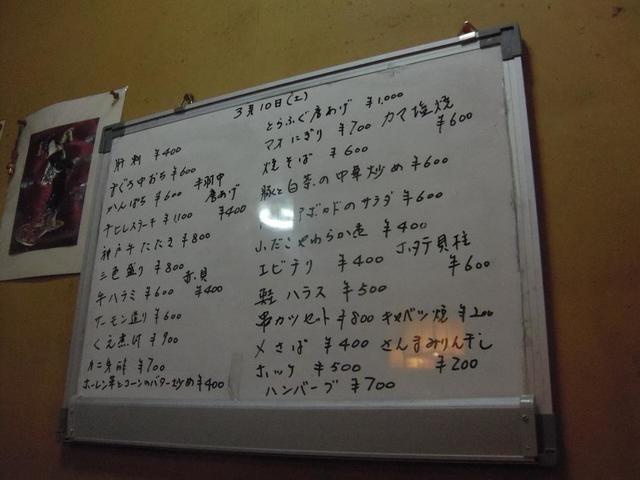 3月10日(土)
肝刺 ¥400
まぐろ中おち ¥600
かんぱち ¥600 手羽中
唐あげ
¥400
ヒレステーキ ¥1,100
神戸牛たたき ¥800
三色盛り ¥800 赤貝
¥400
牛ハラミ ¥600
サーモン造り ¥600
くえ煮付 ¥900
カニ身酢 ¥700
ホーレン草とコーンのバター炒め ¥400
とらふぐ唐あげ ¥1,000
マスにぎり ¥700 カマ塩焼
¥600
焼そば ¥600
豚と白菜の中華炒め ¥600
アボカドのサラダ ¥600
小だこやわらか煮 ¥400
エビチリ ¥400 ホタテ貝柱
¥600
鮭ハラス ¥500
串カツセット ¥800 キャベツ焼 ¥200
メさば ¥400 さんまみりん干し
¥200
ホッケ ¥500
ハンバーグ ¥700